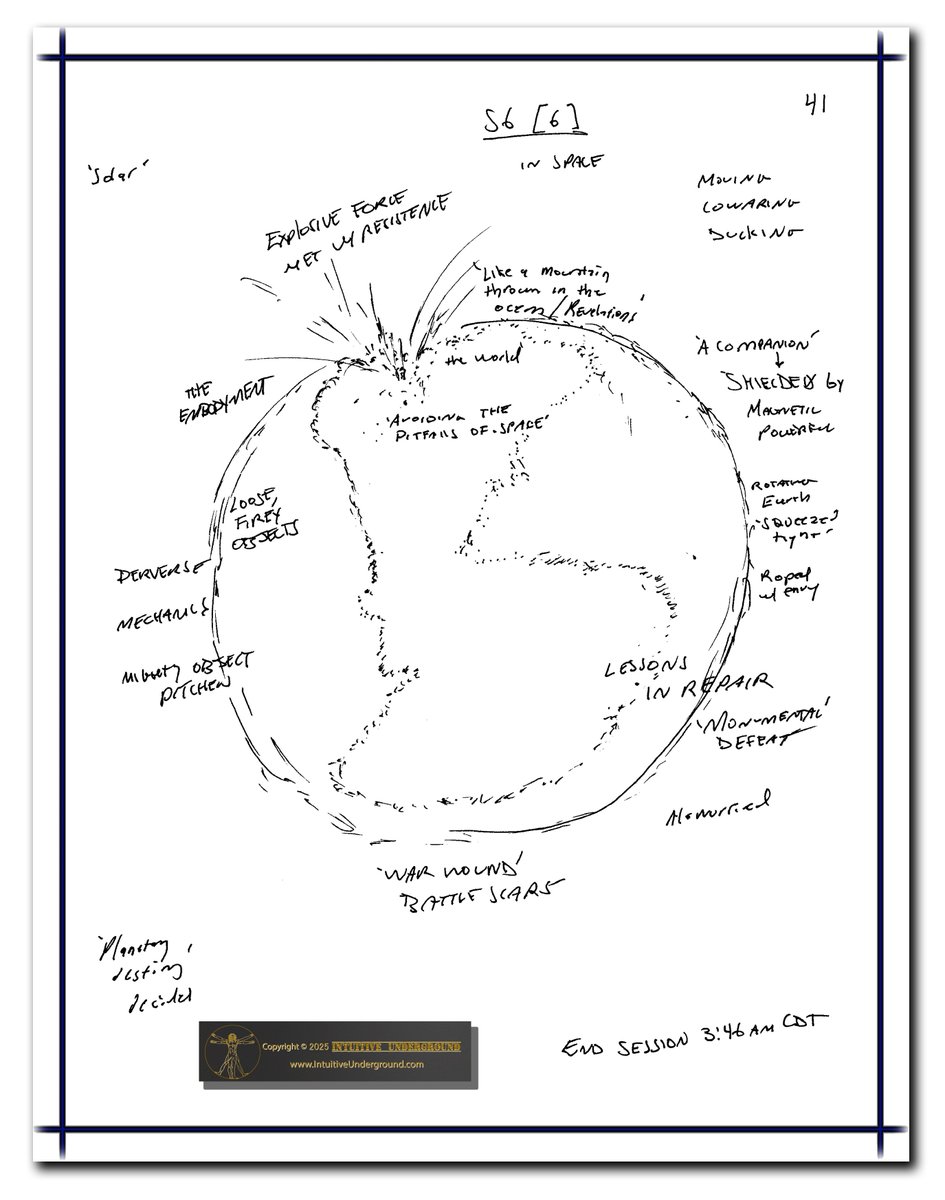 41
S6 [6]
IN SPACE
'Solar'
MOVING
LOWARING
DUCKING
EXPLOSIVE FORCE
MET W/ RESISTENCE
'Like a mountain
thrown in the
ocean / Revelations'
the world
'A COMPANION'
SHIELDED by
MAGNETIC
POWERFUL
THE
EMBODYMENT
'AVOIDING THE
PITFALLS OF SPACE'
ROTATING
Earth
'SQUEEZED
tight'
LOOSE,
FIREY
OBJECTS
PERVERSE
MECHANICS
Roped
w/ envy
MIGHTY OBJECT
PITCHED
LESSONS
IN REPAIR
'MONUMENTAL'
DEFEAT
'WAR WOUND'
BATTLE SCARS
'Planetary
destiny
decided
END SESSION 3:46 AM CDT
Copyright © 2025 INTUITIVE UNDERGROUND
www.IntuitiveUnderground.com